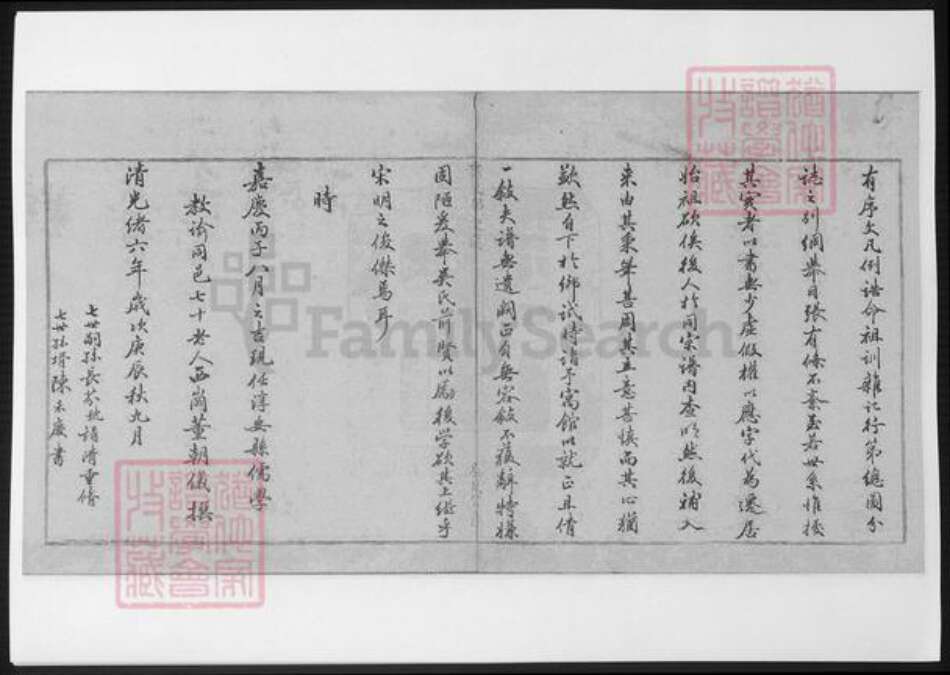 有序文凡例誥命祖訓雜記行第總圖分
誌之列綱舉目張有條不紊至若世系惟按
其實者以書無少虛假權以應字代為遷居
始祖欲俟後人於同宗譜內查明然後補入
來由其秉筆甚周其立意甚慎而其心猶
歉然自下於鄉試時詣予寓館以就正且倩
一敍夫譜無遺詞正自無容敘不獲辭特據
固陋爰舉吳氏前賢以為後學欲其上繼乎
宋明之俊傑焉耳
時
嘉慶丙子八月之吉現任淳安縣儒學
教諭同邑七十老人西崗董朝儀撰
清光緒六年歲次庚辰秋九月
七世嗣孫長 清重修
七世孫壻陳 慶書
FamilySearch